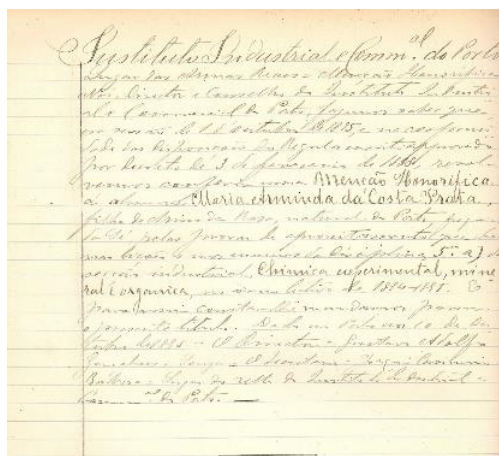 Instituto Industrial e Comm.al do Porto
Lugar das Armas Reaes = Menção Honorifica
Nós, Director e Conselho do Instituto Industri
al e Commercial do Porto, fazemos saber que
em sessão de de outubro de 1895 e na conformi
dade das disposições do Regulamento approvado
por decreto de 3 de fevereiro de resol
vemos conferir uma Menção Honorifica
á alumna Maria Arminda da Costa Prata,
filha de Arminda Rosa, natural do Porto,
da Sé pelas provas de aproveitamento que deu
nas lições e nos exames da disciplina 5.a
secção industrial, Chimica experimental, mine
ral e organica, no anno lectivo de 1894-1895. E
para assim constar lhe mandamos passar
o presente titulo. Dado no Porto em 10 de
de 1895 = O Director = Gustavo Adolfo
Gonçalves e Souza = O Secretario =
Barbosa = Lugar do sello do Instituto Industrial e
Comm.al do Porto. —